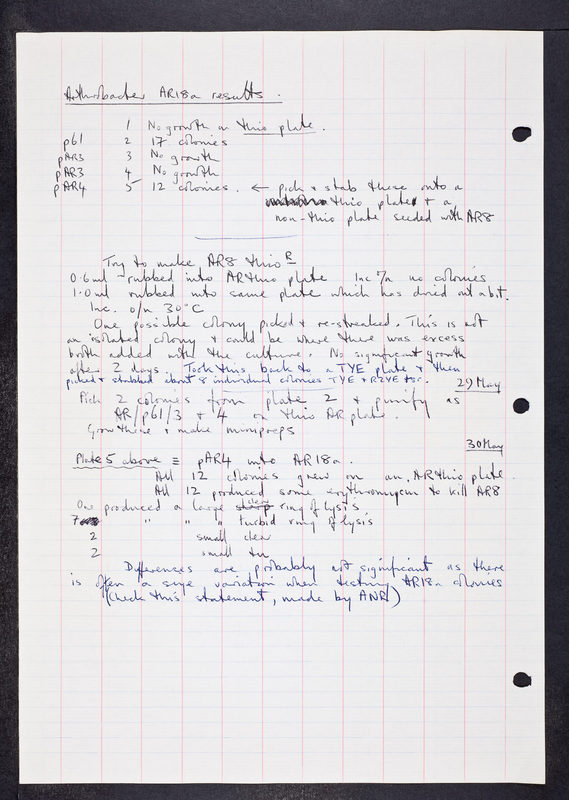 Arthrobacter AR18a results.
1 No growth on thio plate.
p61 2 17 colonies
pAR3 3 No growth
pAR3 4 No growth
pAR4 5 12 colonies. ← pick & stab these onto a
thio plate & a
non-thio plate seeded with AR8
Try to make AR8 thio R
0.6ml rubbed into AR thio plate Inc o/n no colonies
1.0ml rubbed into same plate which has dried out a bit.
Inc. o/n 30°C
One possible colony picked & re-streaked. This is not
an isolated colony & could be where there was excess
broth added with the culture. No significant growth
after 2 days. Took this back to a TYE plate & then
picked & stabbed about 8 individual colonies TYE & R2YE thio.
29 May
Pick 2 colonies from plate 2 & purify as
AR/p61/3 & 4 on thio AR plate.
Grow these & make minipreps
30 May
Plate 5 above ≡ pAR4 into AR18a.
All 12 colonies grew on an AR thio plate
All 12 produced some erythromycin to kill AR8
One produced a large clear ring of lysis
7 " " " turbid ring of lysis
2 small clear
2 small tu
Differences are probably not significant as there
is often a size variation when testing AR18a colonies
(check this statement, made by ANR)